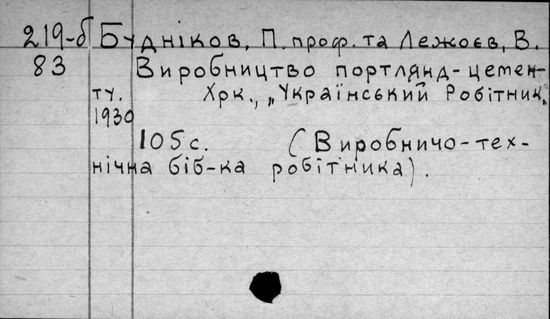 219-б Будніков, П. проф. та Лежоєв, В.
83 Виробництво портлянд-цемен-
ту. Хрк., „Український Робітник,
1930
105 с. (Виробничо-тех-
нічна біб-ка робітника).